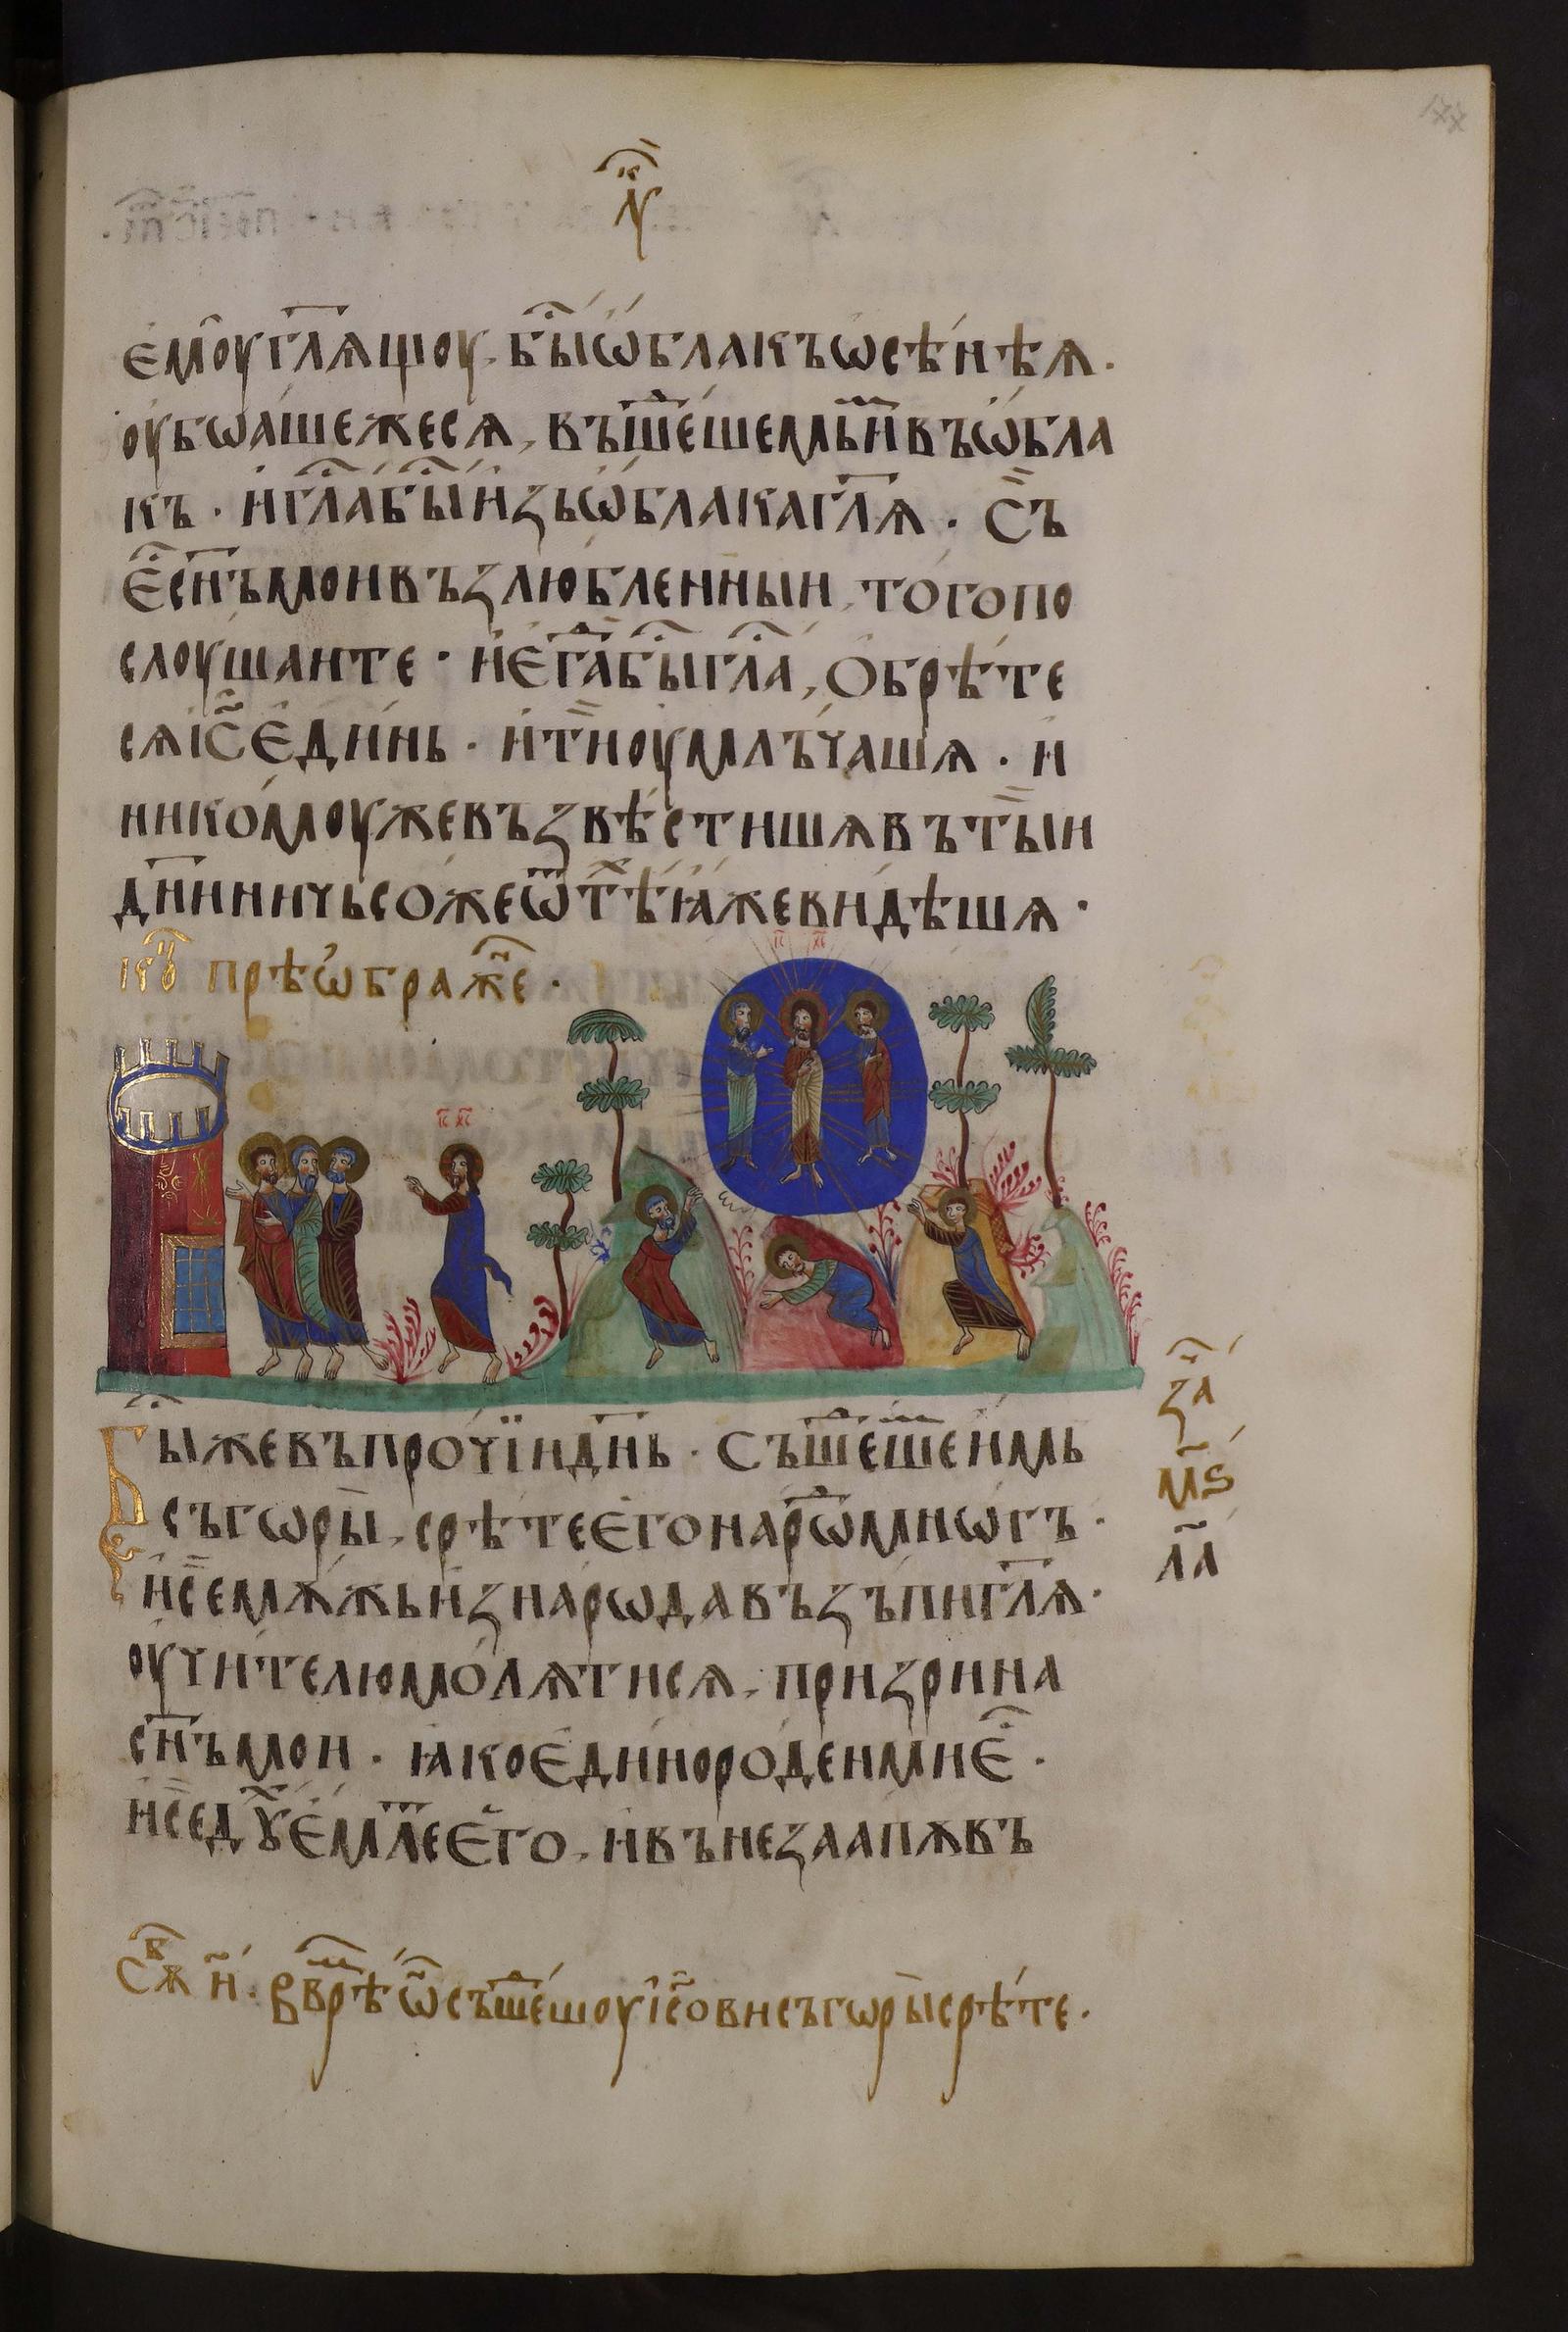 емоу гл҃ящоу. бы҃ ѡблакъ ѡсѣнѣ я.
оубѡашеже ся, въшⷣешемь и҆ въ ѡбла
къ · и҆ гл҃а бы҃ и҆зь ѡблака гл҃я · Съ
е҃ сн҃ъ мои възлюбленныи, того по
слоушаите · и҆ е҆гⷣа бы҃ гл҃а, Обрѣте
ся і҆с҃ е҆динь · и҆ ти҃ оумлъчашѧ · и҆
никомоуже възвѣстишѧ въ ты҃и
дн҃и ничьсоже ѿ тѣⷯ ꙗже видѣшѧ ·
прѣѡбражеⷩ҇е ·
і҃с х҃с
і҃с х҃с
Бы҃ же въ прочїи дн҃ь · Съшⷣешеи мь
съ гѡры, срѣте е҆го нарѡⷣ мнѡгъ ·
и҆ се мѫжь и҆з нарѡда възъпи гл҃ѧ ·
оучителю молѧ ти ся, призри на
сн҃ъ мои · ꙗко единороден ми е҃ ·
и҆ се дꙋⷯ е҆млⷮе е҆го, и҆ вънезаапѫ въ
за҃
м҃ѕ
ла҃
врⷨѣ ѡ҃ съшⷣешоу і҆с҃ови съ гѡры срѣте ·